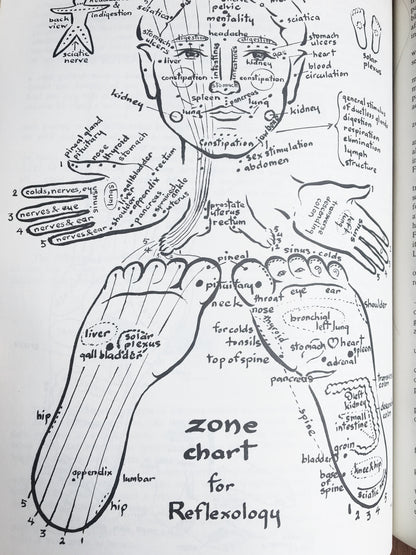 headache
&
indigestion
back
view
sciatic
nerve
pelvi
mentality
sciatica
headache
stomach
ulcers
digestion
digestion
stomach
ulcers
liver
kidney
heart
intestines
intestines
constipation
constipation
blood
circulation
stomach
solar
plexus
kidney
spleen
lung
lung
kidney
general stimulus
of ductless glands
digestion
respiration
elimination
lymph
structure
constipation
sex stimulation
abdomen
pineal gland
pituitary
nose
thyroid
stomach
1
2 colds, nerves, eye
3 nerves & eye
4 nerves & ear
5 nerves & ear
sinus
gallbladder
rectum
appendix
shoulder
pancreas
ankle
uterus
prostate
uterus
rectum
lung
sinus
5
pineal
sinus
colds
pituitary
neck
throat
nose
eye
ear
shoulder
thyroid
bronchial
left lung
for colds
tonsils
top of spine
liver
solar
plexus
gall bladder
stomach
heart
spleen
adrenal
pancreas
left
kidney
small
intestine
spine
hip
groin
bladder
knee & hip
base
of
spine
sciatic
appendix
lumbar
hip
5
4
3
2
1
1 2 3 4 5
zone
chart
for
Reflexology